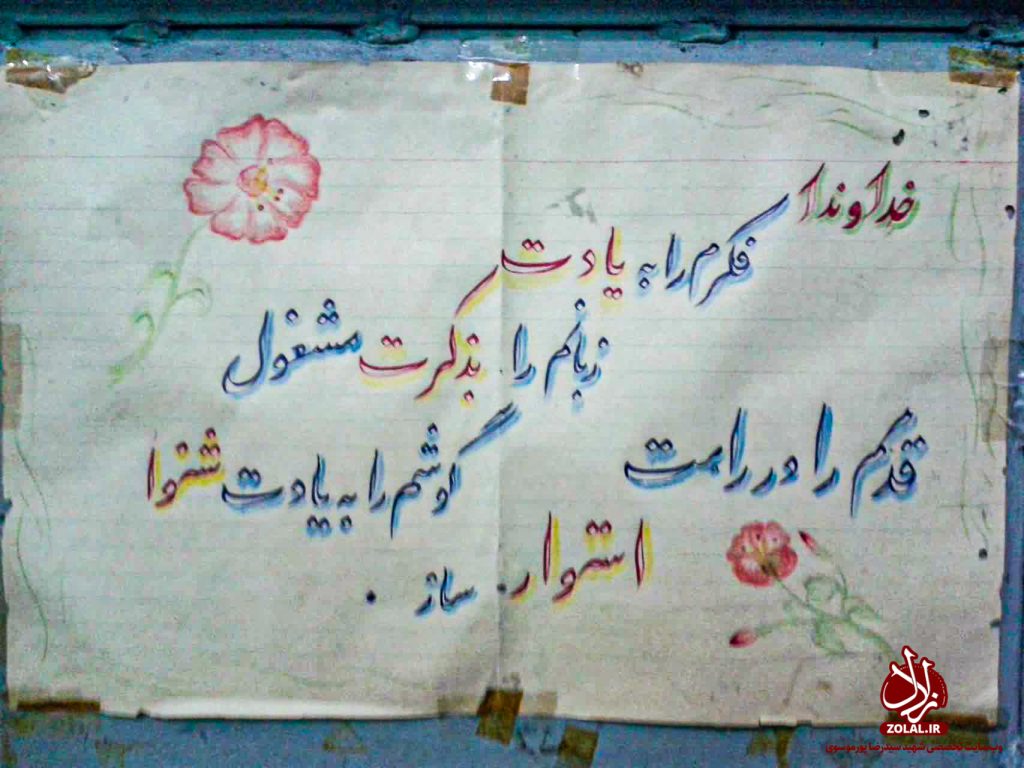 خداوندا
فکرم را به یادت
زبانم را بذکرت مشغول
قدمم را در راهت
گوشم را به یادت شنوا
استوار ساز .
زلال
ZOLAL.IR
وب سایت تخصصی شهید سیدرضا پورموسوی